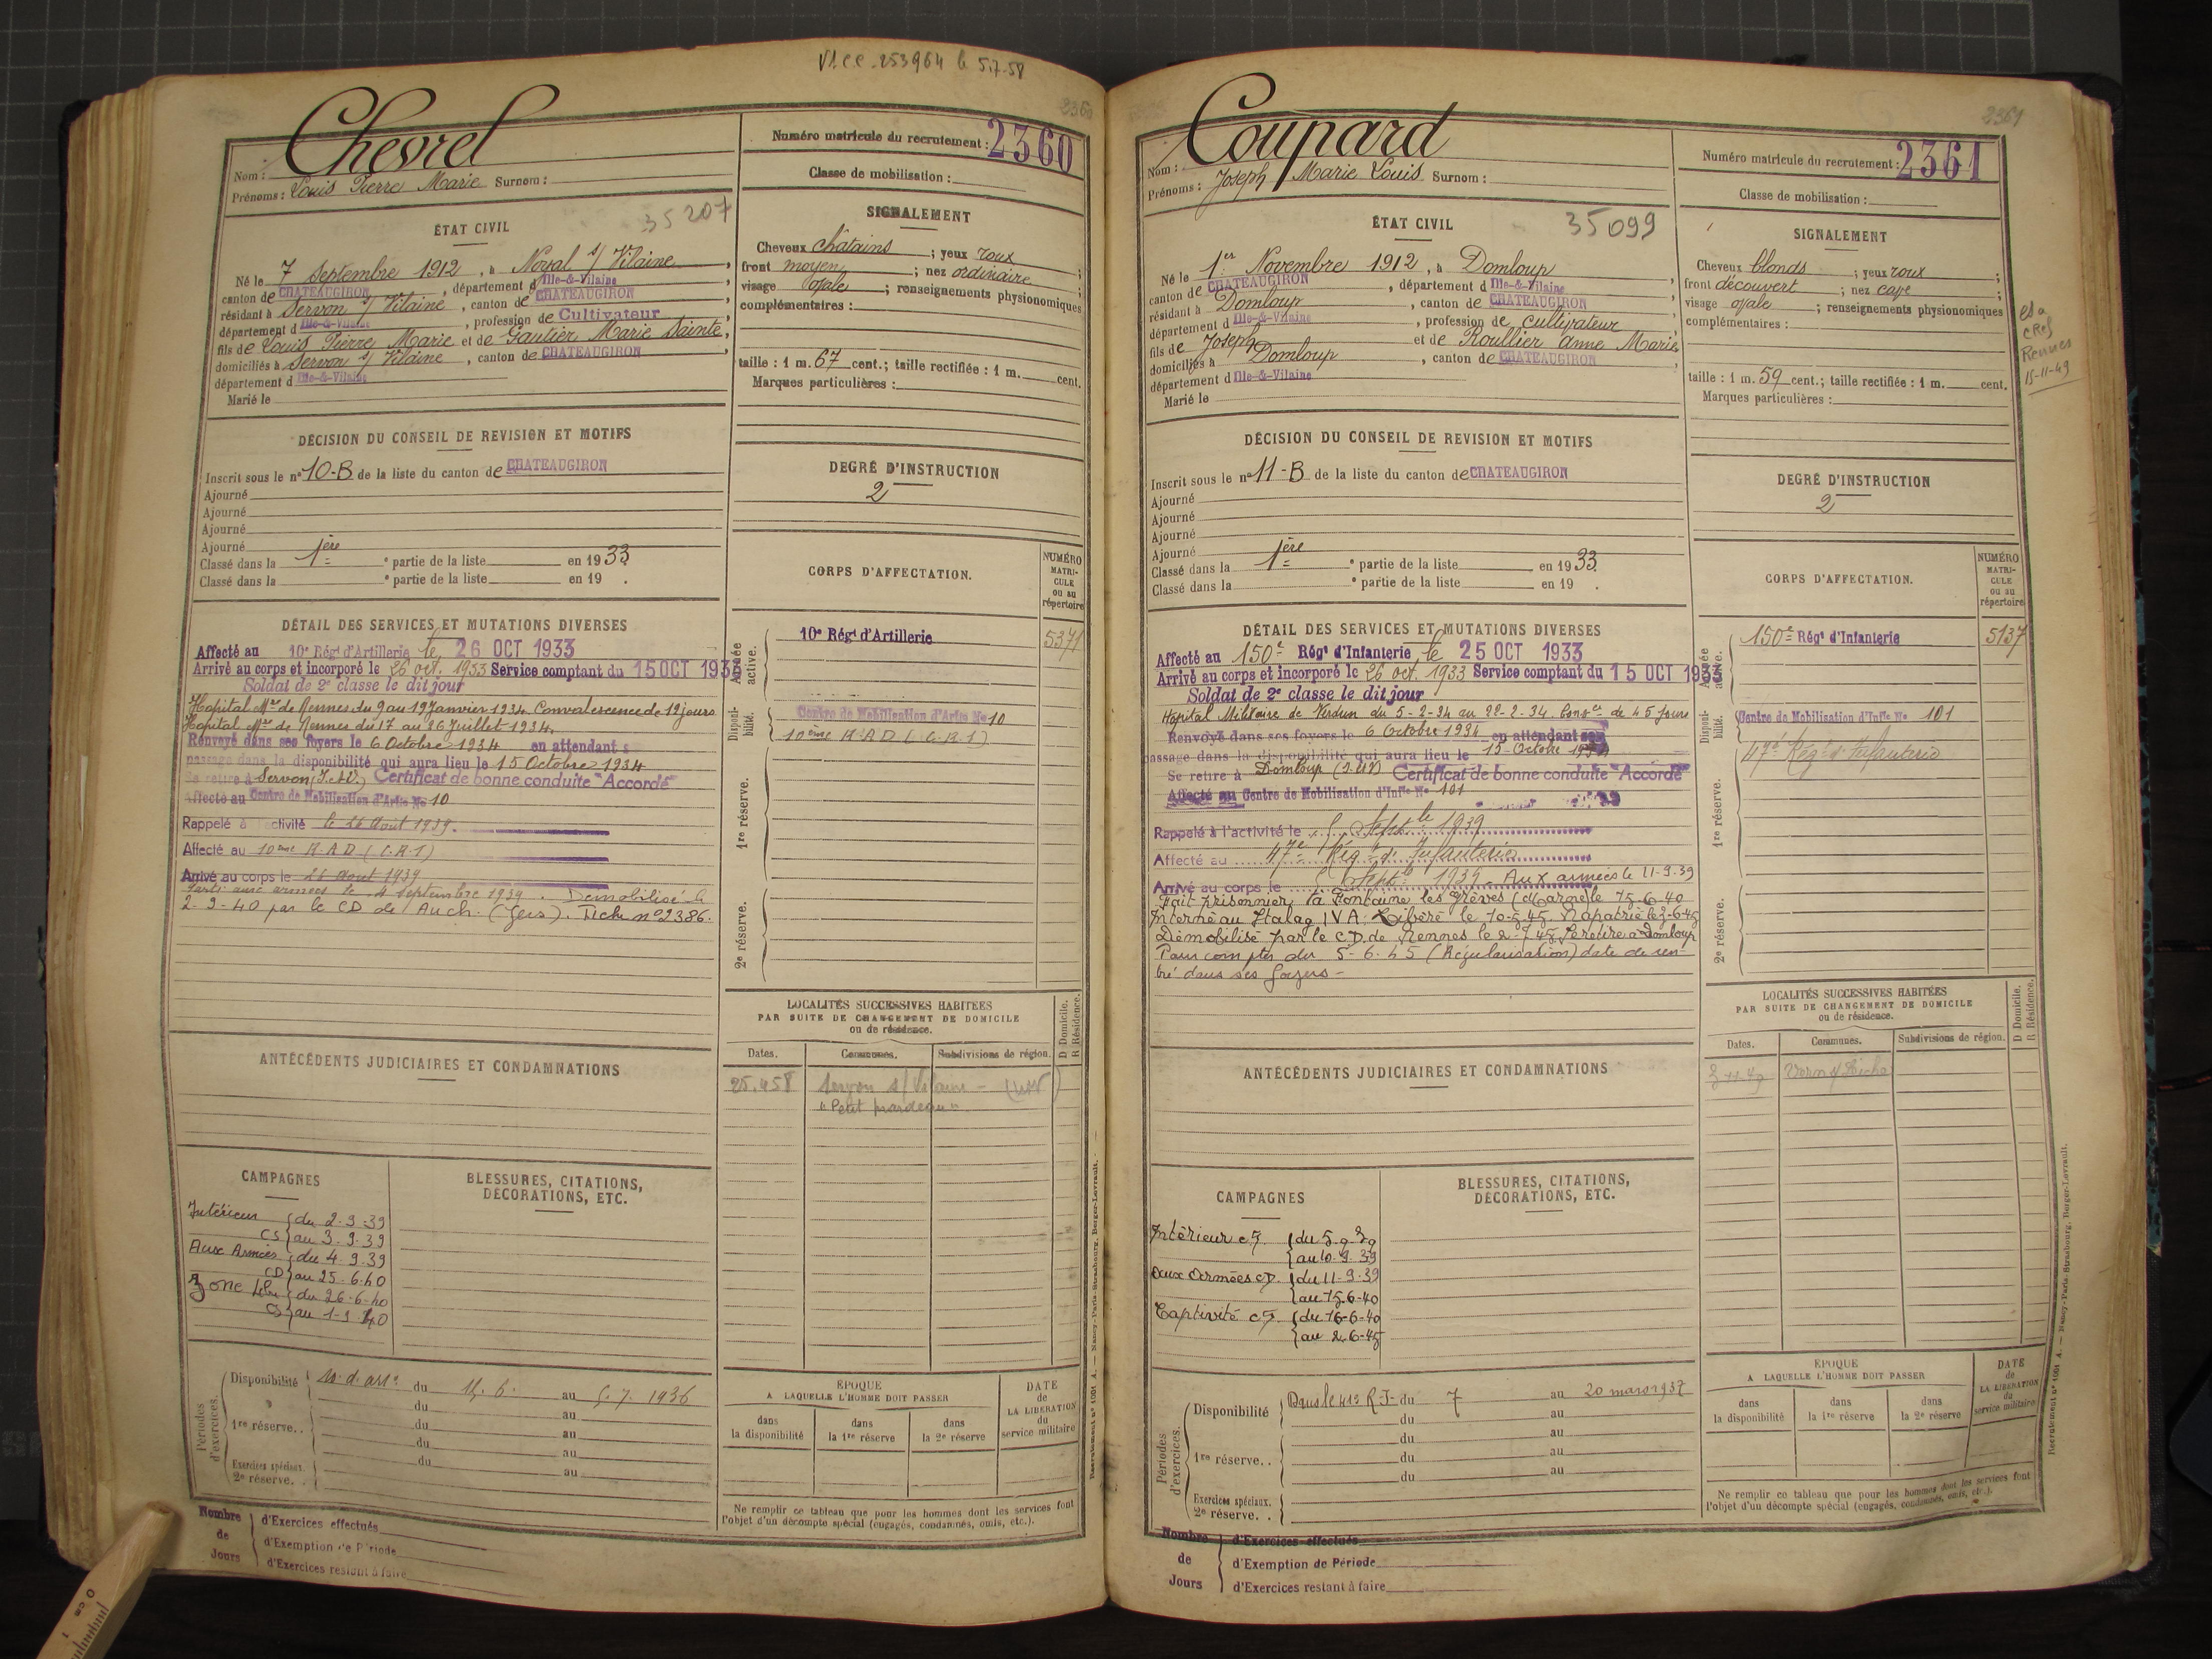 V1.cc.253964 le 5.7.58
2360
Nom : Chevrel
Prénoms : Louis Pierre Marie Surnom :
Numéro matricule du recrutement : 2360
Classe de mobilisation :
ÉTAT CIVIL
35 207
Né le 7 Septembre 1912, à Noyal s/ Vilaine,
canton de CHATEAUGIRON, département d Ille-&-Vilaine
résidant à Servon s/ Vilaine, canton de CHATEAUGIRON
département d Ille-&-Vilaine, profession de Cultivateur
fils de Louis Pierre Marie et de Gautier Marie Sainte,
domiciliés à Servon s/ Vilaine, canton de CHATEAUGIRON
département d Ille-&-Vilaine
Marié le
SIGNALEMENT
Cheveux châtains ; yeux roux ;
front moyen ; nez ordinaire ;
visage ovale ; renseignements physionomiques
complémentaires :
taille : 1 m. 67 cent.; taille rectifiée : 1 m. cent.
Marques particulières :
DÉCISION DU CONSEIL DE REVISION ET MOTIFS
Inscrit sous le n° 10-B de la liste du canton de CHATEAUGIRON
Ajourné
Ajourné
Ajourné
Ajourné
Classé dans la 1ère partie de la liste en 1933
Classé dans la ° partie de la liste en 19 .
DEGRÉ D'INSTRUCTION
2
CORPS D'AFFECTATION.
NUMÉRO MATRI-CULE ou au répertoire
Armée active.
10e Régt d'Artillerie 5371
Disponi-bilité.
Centre de Mobilisation d'Artie No 10
10ème R.A.D (C.R.1)
1re réserve.
2e réserve.
DÉTAIL DES SERVICES ET MUTATIONS DIVERSES
Affecté au 10e Régt d'Artillerie le 26 OCT 1933
Arrivé au corps et incorporé le 26 oct. 1933 Service comptant du 15 OCT 1933
Soldat de 2e classe le dit jour
Hopital Mre de Rennes du 9 au 19 Janvier 1934. Convalescence de 12 jours
Hopital Mre de Rennes du 17 au 26 Juillet 1934.
Renvoyé dans ses foyers le 6 Octobre 1934 en attendant s
passage dans la disponibilité qui aura lieu le 15 Octobre 1934
Se retire à Servon (I.&V) Certificat de bonne conduite "Accordé"
Affecté au Centre de Mobilisation d'Artie No 10
Rappelé à l'activité le 26 Août 1939.
Affecté au 10ème R.A.D (C.R.1)
Arrivé au corps le 26 Août 1939
Parti aux armées le 4 Septembre 1939. Démobilisé le
2-9-40 par le CD de Auch. (Gers). Fiche n° 2386.
LOCALITÉS SUCCESSIVES HABITÉES
PAR SUITE DE CHANGEMENT DE DOMICILE
ou de résidence.
Dates. Communes. Subdivisions de région. D Domicile. R Résidence.
25.4.58 Servon s/ Vilaine - (I&V)
ANTÉCÉDENTS JUDICIAIRES ET CONDAMNATIONS
CAMPAGNES
BLESSURES, CITATIONS, DÉCORATIONS, ETC.
Intérieur { du 2-9-39
CS } au 3-9-39
Aux Armées { du 4-9-39
CD } au 25-6-40
Zone libre { du 26-6-40
CS } au 1-9-40
Périodes d'exercices.
Disponibilité du 15.6. au 5.7. 1936
du au
1re réserve. . du au
du au
Exercices spéciaux. du au
2e réserve. .
ÉPOQUE
A LAQUELLE L'HOMME DOIT PASSER
dans la disponibilité
dans la 1re réserve
dans la 2e réserve
DATE de LA LIBÉRATION du service militaire
Ne remplir ce tableau que pour les hommes dont les services font
l'objet d'un décompte spécial (engagés, condamnés, omis, etc.).
Nombre de Jours
d'Exercices effectués
d'Exemption de Période
d'Exercices restant à faire
Recrutement n° 1001 A. — Nancy-Paris-Strasbourg, Berger-Levrault.
2361
Nom : Coupard
Prénoms : Joseph Marie Louis Surnom :
Numéro matricule du recrutement : 2361
Classe de mobilisation :
ÉTAT CIVIL
35099
Né le 1er Novembre 1912, à Domloup
canton de CHATEAUGIRON, département d Ille-&-Vilaine
résidant à Domloup, canton de CHATEAUGIRON
département d Ille-&-Vilaine, profession de cultivateur
fils de Joseph et de Roullier Anne Marie
domiciliés à Domloup, canton de CHATEAUGIRON
département d Ille-&-Vilaine
Marié le
SIGNALEMENT
Cheveux blonds ; yeux roux ;
front découvert ; nez cave ;
visage ovale ; renseignements physionomiques
complémentaires :
taille : 1 m. 59 cent.; taille rectifiée : 1 m. cent.
Marques particulières :
Rennes
15-11-49
DÉCISION DU CONSEIL DE REVISION ET MOTIFS
Inscrit sous le n° 11-B de la liste du canton de CHATEAUGIRON
Ajourné
Ajourné
Ajourné
Ajourné
Classé dans la 1ère partie de la liste en 1933
Classé dans la ° partie de la liste en 19 .
DEGRÉ D'INSTRUCTION
2
CORPS D'AFFECTATION.
NUMÉRO MATRI-CULE ou au répertoire
Armée active.
150e Régt d'Infanterie 5137
Disponi-bilité.
Centre de Mobilisation d'Infie No 101
47e Régt d'Infanterie
1re réserve.
2e réserve.
DÉTAIL DES SERVICES ET MUTATIONS DIVERSES
Affecté au 150e Régt d'Infanterie le 25 OCT 1933
Arrivé au corps et incorporé le 26 oct. 1933 Service comptant du 15 OCT 1933
Soldat de 2e classe le dit jour
Hôpital Militaire de Verdun du 5-2-34 au 22-2-34. Convce de 45 jours
Renvoyé dans ses foyers le 6 Octobre 1934 en attendant son
passage dans la disponibilité qui aura lieu le 15 Octobre 1934
Se retire à Domloup (I.&V) Certificat de bonne conduite "Accordé"
Affecté au Centre de Mobilisation d'Infie No 101
Rappelé à l'activité le 5 Septbre 1939
Affecté au 47e Régt d'Infanterie
Arrivé au corps le 5 Septbre 1939. Aux armées le 11-9-39
Fait prisonnier, la Fontaine les Grèves (Marne) le 15-6-40
Interné au Stalag IVA. Libéré le 10-5-45. Rapatrié le 3-6-45
Démobilisé par le C.D. de Rennes le 2-7-45. Se retire à Domloup
Pour compter du 5-6-45 (Régularisation) date de ren-
tré dans ses foyers -
LOCALITÉS SUCCESSIVES HABITÉES
PAR SUITE DE CHANGEMENT DE DOMICILE
ou de résidence.
Dates. Communes. Subdivisions de région. D Domicile. R Résidence.
Vern s/ Seiche
ANTÉCÉDENTS JUDICIAIRES ET CONDAMNATIONS
CAMPAGNES
BLESSURES, CITATIONS, DÉCORATIONS, ETC.
Intérieur cS { du 5-9-39
} au 10-9-39
aux Armées cD { du 11-9-39
} au 15-6-40
Captivité cS { du 16-6-40
} au 2-6-45
Périodes d'exercices.
Disponibilité Dans le 41e R-I- du 7 au 20 mars 1937
du au
du au
1re réserve. . du au
du au
Exercices spéciaux.
2e réserve. .
ÉPOQUE
A LAQUELLE L'HOMME DOIT PASSER
dans la disponibilité
dans la 1re réserve
dans la 2e réserve
DATE de LA LIBÉRATION du service militaire
Ne remplir ce tableau que pour les hommes dont les services font
l'objet d'un décompte spécial (engagés, condamnés, omis, etc.).
Nombre de Jours
d'Exercices effectués
d'Exemption de Période
d'Exercices restant à faire
Recrutement n° 1001 A. — Nancy-Paris-Strasbourg, Berger-Levrault.
0 cm 1